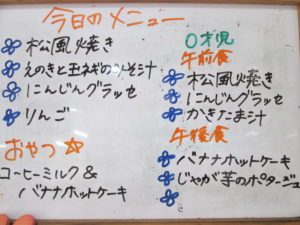 今日のメニュー
松風焼き
えのきと玉ネギのみそ汁
にんじんグラッセ
りんご
おやつ
コーヒーミルク&
バナナホットケーキ
0才児
午前食
松風焼き
にんじんグラッセ
かきたま汁
午後食
バナナホットケーキ
じゃが芋のポタージュ